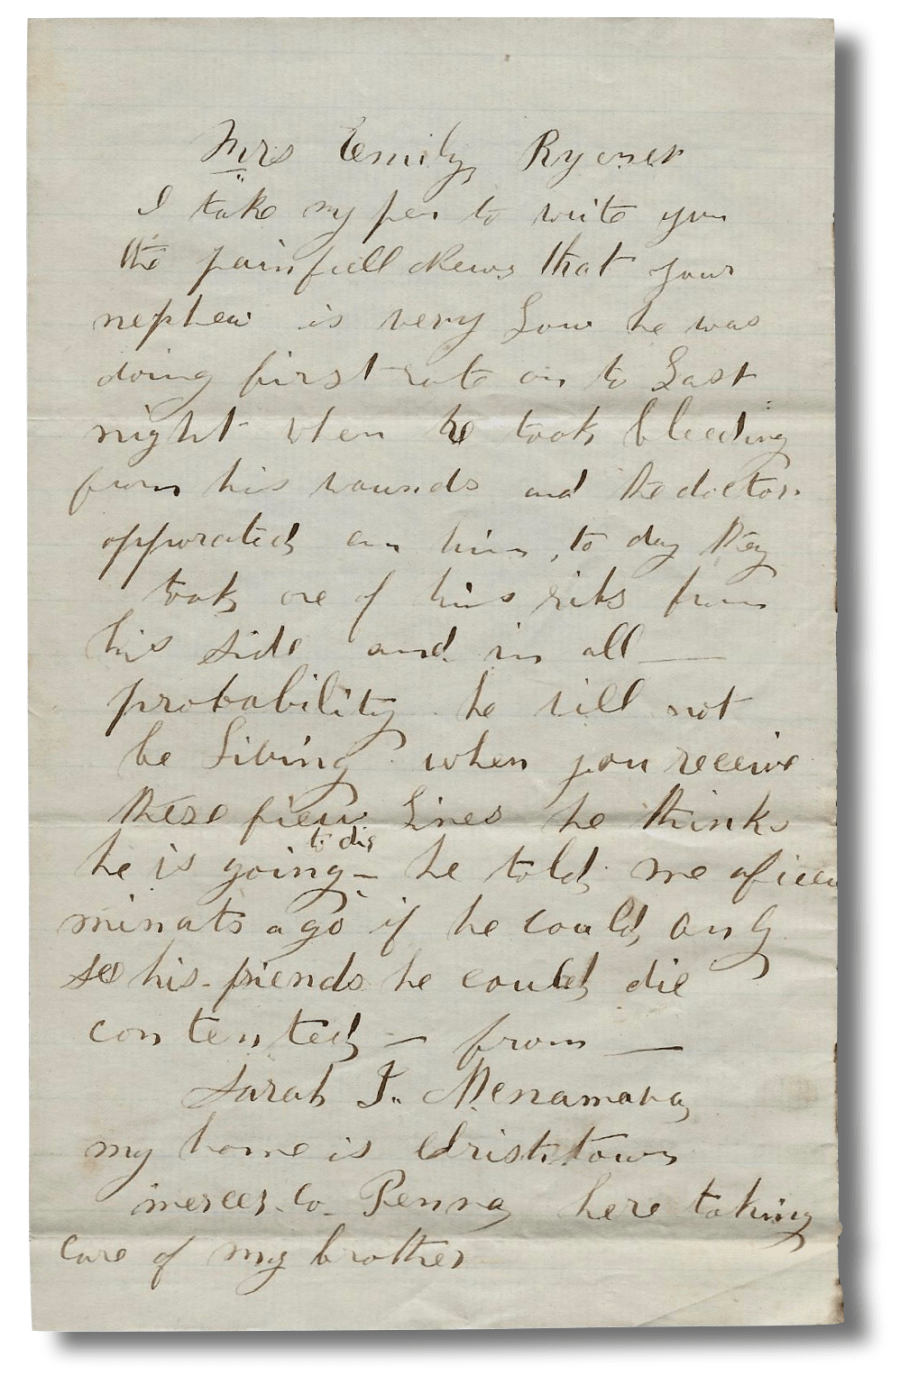 Mrs Emily Rymer
I take my pen to write you
the painfull News that your
nephew is very Low he was
doing first rate on to Last
night when he took bleeding
from his wounds and the doctor
opporated on him, to day they
took one of his ribs from
his side and in all —
probability he will not
be Living when you receive
these fiew Lines he thinks
to die
he is going — he told me a fiew
minats ago if he could only
see his friends he could die
contented — from —
Sarah J. McNamara
my home is
mercer. Co. Penna here taking
care of my brother